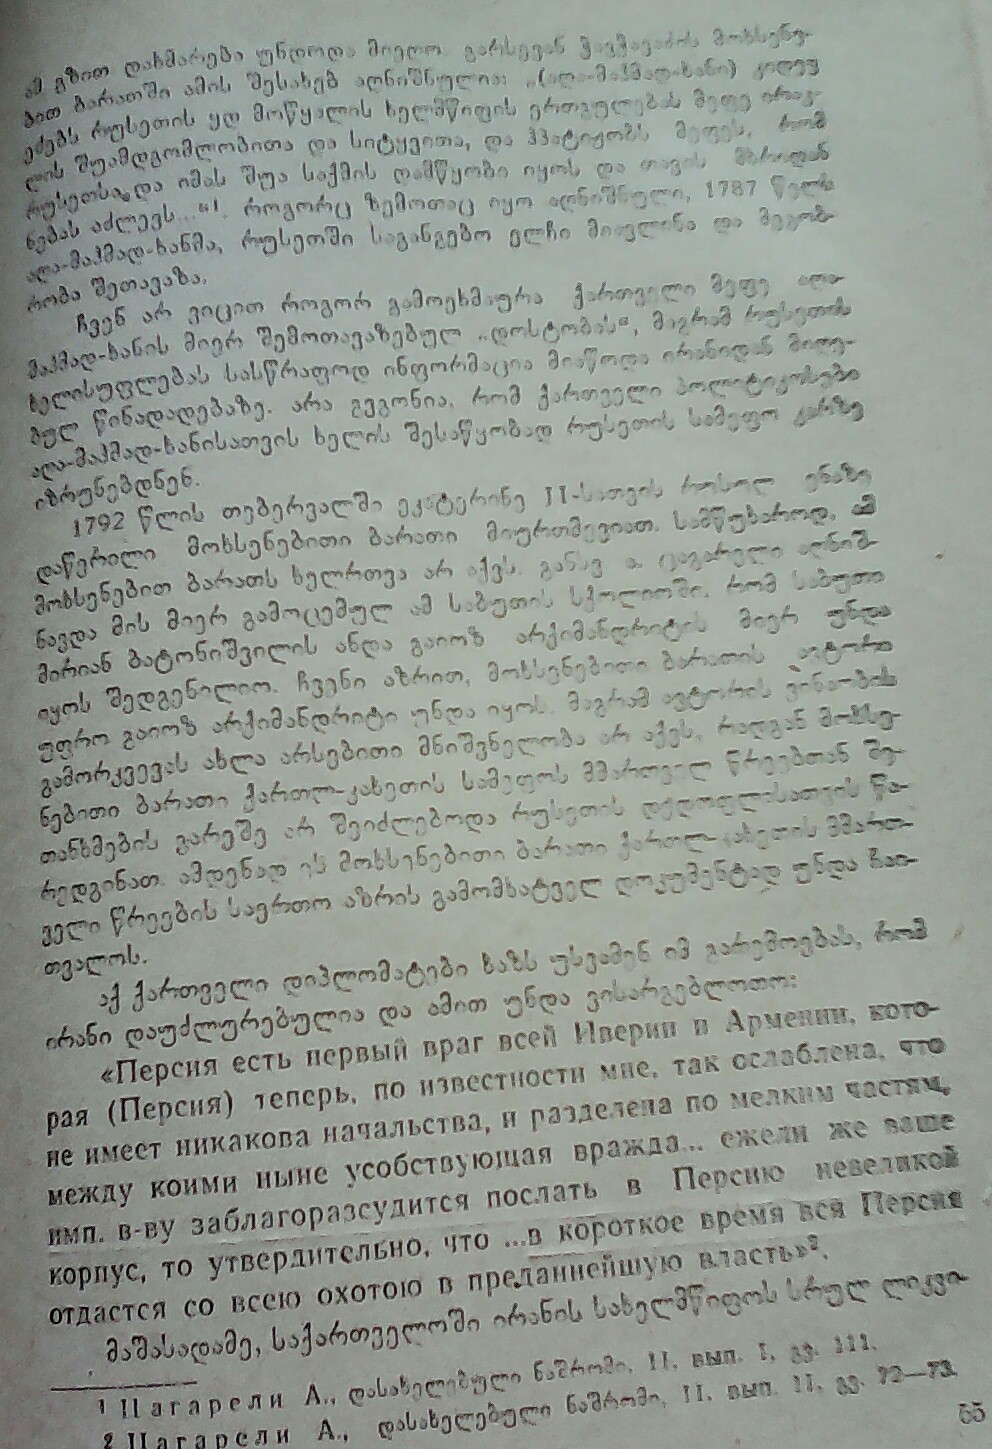 ამ გზით დახმარება უნდოდა მიეღო. გარსევან ჭავჭავაძის მოხსენე-
ბით ბარათში ამის შესახებ აღნიშნულია: „(აღა-მაჰმად-ხანი) კიდევ
ეძებს რუსეთის ყდ მოწყალის ხელმწიფის ერთგულებას მეფე ირაკ-
ლის შუამდგომლობითა და სიტყვითა, და ჰპატიჟობს მეფეს, რომ
რუსეთსა და იმას შუა საქმის დამწყობი იყოს და თავის მხრიდან
ნებას აძლევს..."¹. როგორც ზემოთაც იყო აღნიშნული, 1787 წელს
აღა-მაჰმად-ხანმა, რუსეთში საგანგებო ელჩი მიავლინა და მეგობ-
რობა შეთავაზა.
ჩვენ არ ვიცით როგორ გამოეხმაურა ქართველი მეფე აღა-
მაჰმად-ხანის მიერ შემოთავაზებულ „დოსტობას", მაგრამ რუსეთის
ხელისუფლებას სასწრაფოდ ინფორმაცია მიაწოდა ირანიდან მიღე-
ბულ წინადადებაზე. არა გვგონია, რომ ქართველი პოლიტიკოსები
აღა-მაჰმად-ხანისათვის ხელის შესაწყობად რუსეთის სამეფო კარზე
იზრუნებდნენ.
1792 წლის თებერვალში ეკატერინე II-სათვის რუსულ ენაზე
დაწერილი მოხსენებითი ბარათი მიურთმევიათ. სამწუხაროდ, ამ
მოხსენებით ბარათს ხელრთვა არ აქვს. განსვ. ა. ცაგარელი აღნიშ-
ნავდა მის მიერ გამოცემულ ამ საბუთის სქოლიოში, რომ საბუთი
მირიან ბატონიშვილის ანდა გაიოზ არქიმანდრიტის მიერ უნდა
იყოს შედგენილიო. ჩვენი აზრით, მოხსენებითი ბარათის ავტორი
უფრო გაიოზ არქიმანდრიტი უნდა იყოს. მაგრამ ავტორის ვინაობის
გამორკვევას ახლა არსებითი მნიშვნელობა არ აქვს, რადგან მოხსე-
ნებითი ბარათი ქართლ-კახეთის სამეფოს მმართველ წრეებთან შე-
თანხმების გარეშე არ შეიძლებოდა რუსეთის დედოფლისათვის წა-
რედგინათ. ამდენად ეს მოხსენებითი ბარათი ქართლ-კახეთის მმართ-
ველი წრეების საერთო აზრის გამომხატველ დოკუმენტად უნდა ჩაი-
თვალოს.
აქ ქართველი დიპლომატები ხაზს უსვამენ იმ გარემოებას, რომ
ირანი დაუძლურებულია და ამით უნდა ვისარგებლოთო:
«Персия есть первый враг всей Иверии и Армении, кото-
рая (Персия) теперь, по известности мне, так ослаблена, что
не имеет никакова начальства, и разделена по мелким частям,
между коими ныне усобствующая вражда... ежели же ваше
имп. в-ву заблагоразсудится послать в Персию невеликой
корпус, то утвердительно, что ...в короткое время вся Персия
отдастся со всею охотою в преданнейшую власть»².
მაშასადამე, საქართველოში ირანის სახელმწიფოს სრულ ლიკვი-
¹ Цагарели А., დასახელებული ნაშრომი, II, вып. I, გვ. 111.
² Цагарели А., დასახელებული ნაშრომი, II, вып. II, გვ. 72—73.
55